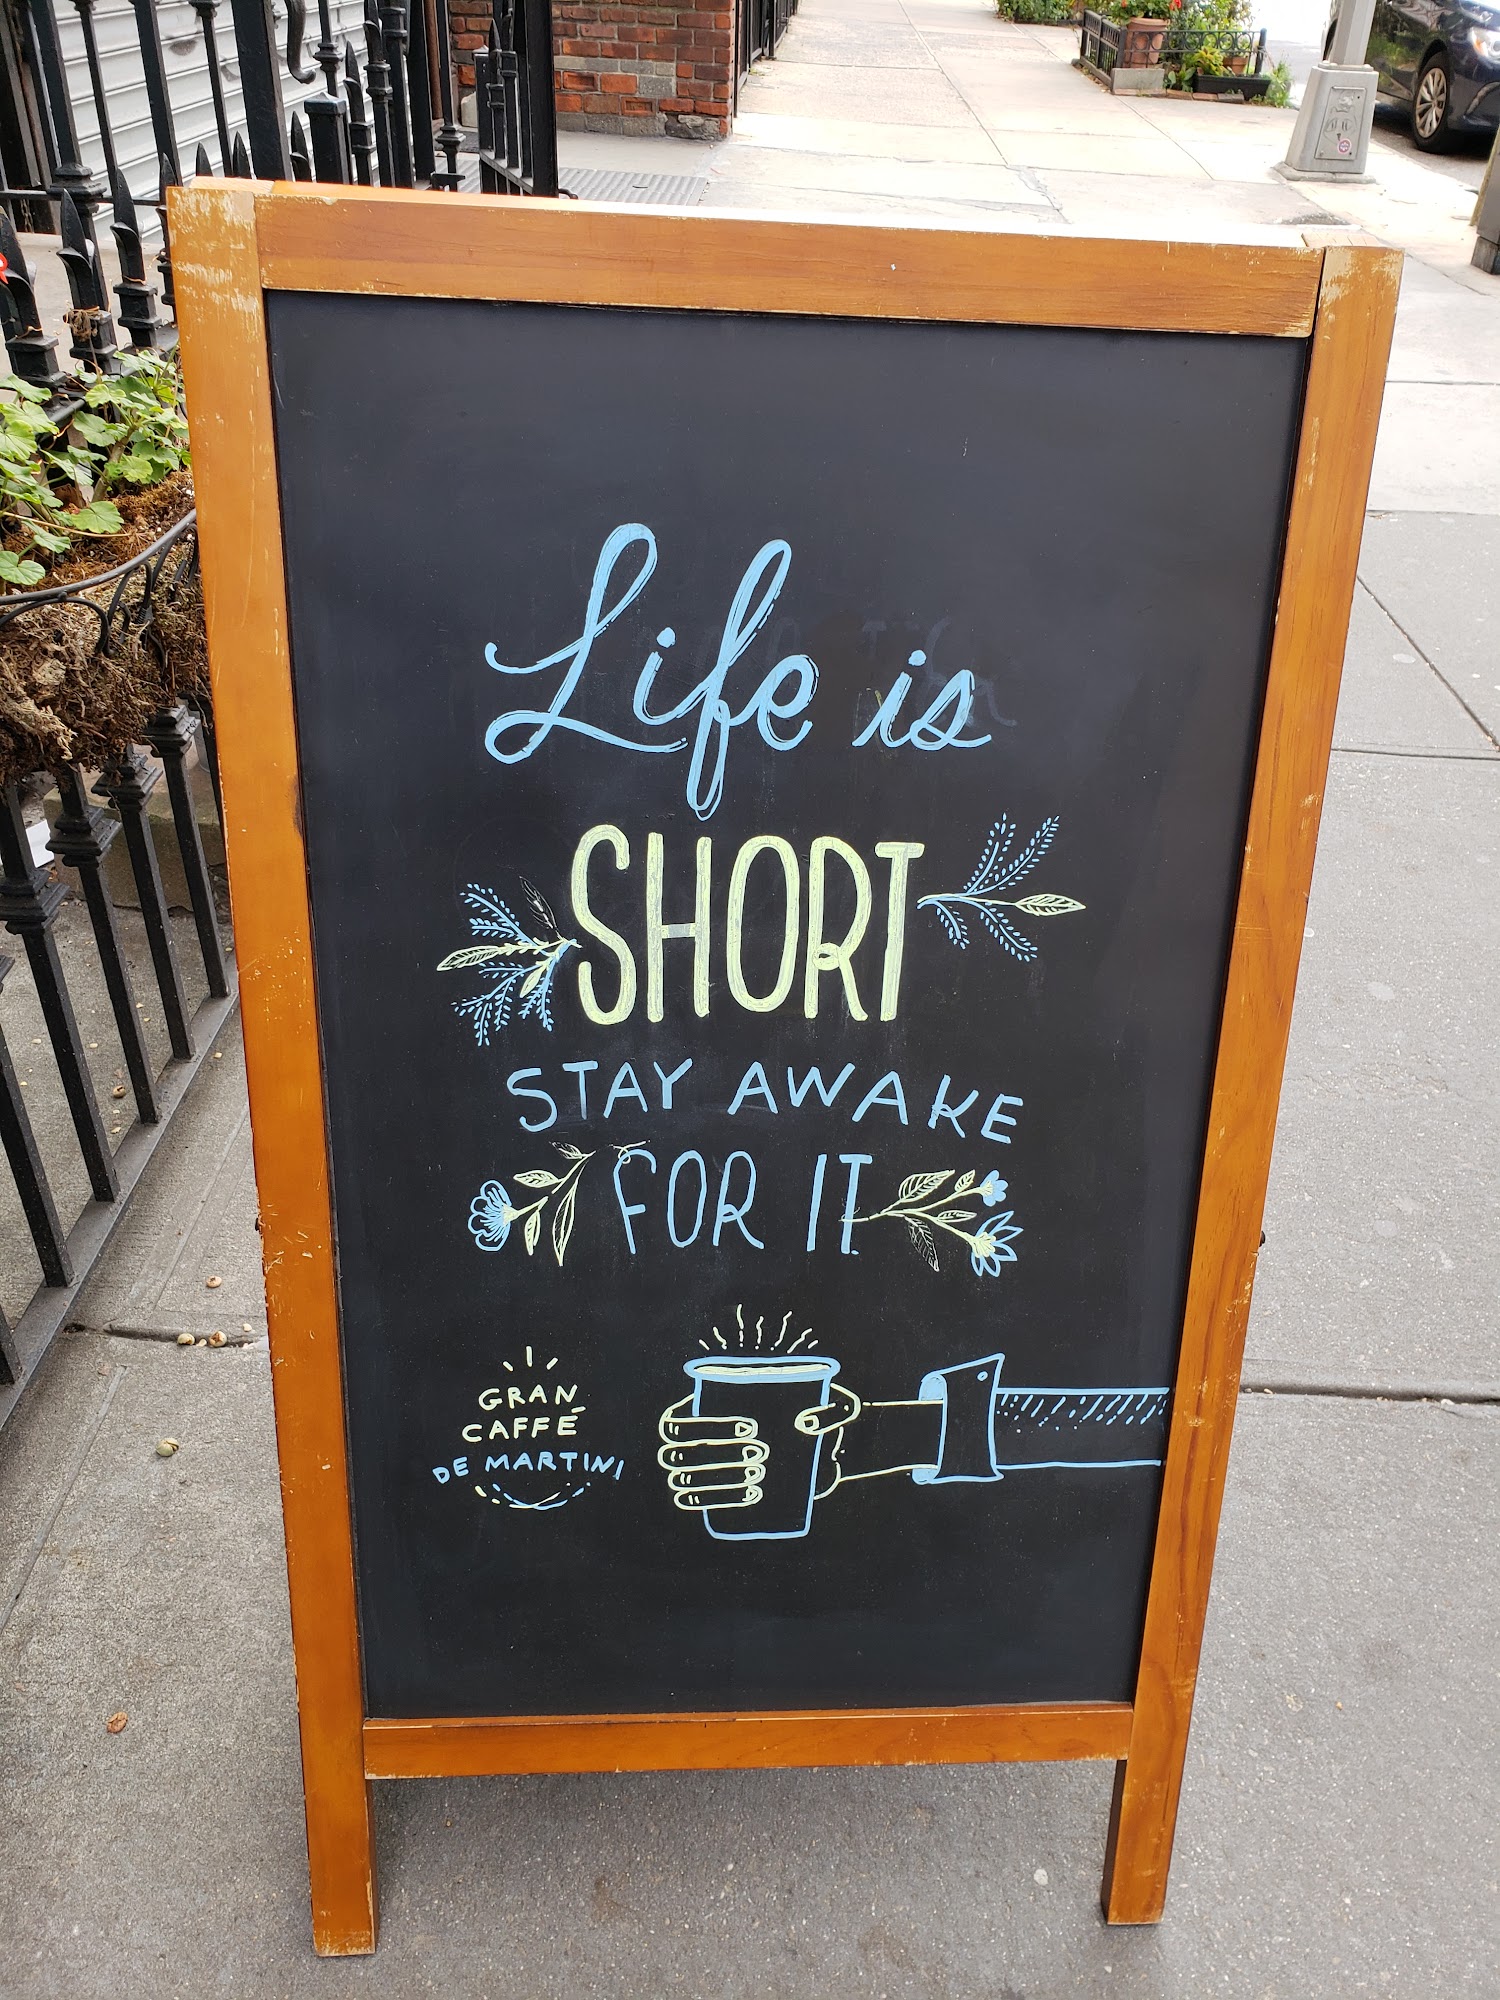 Life is
SHORT
STAY AWAKE
FOR IT
GRAN
CAFFÉ
DE MARTINI